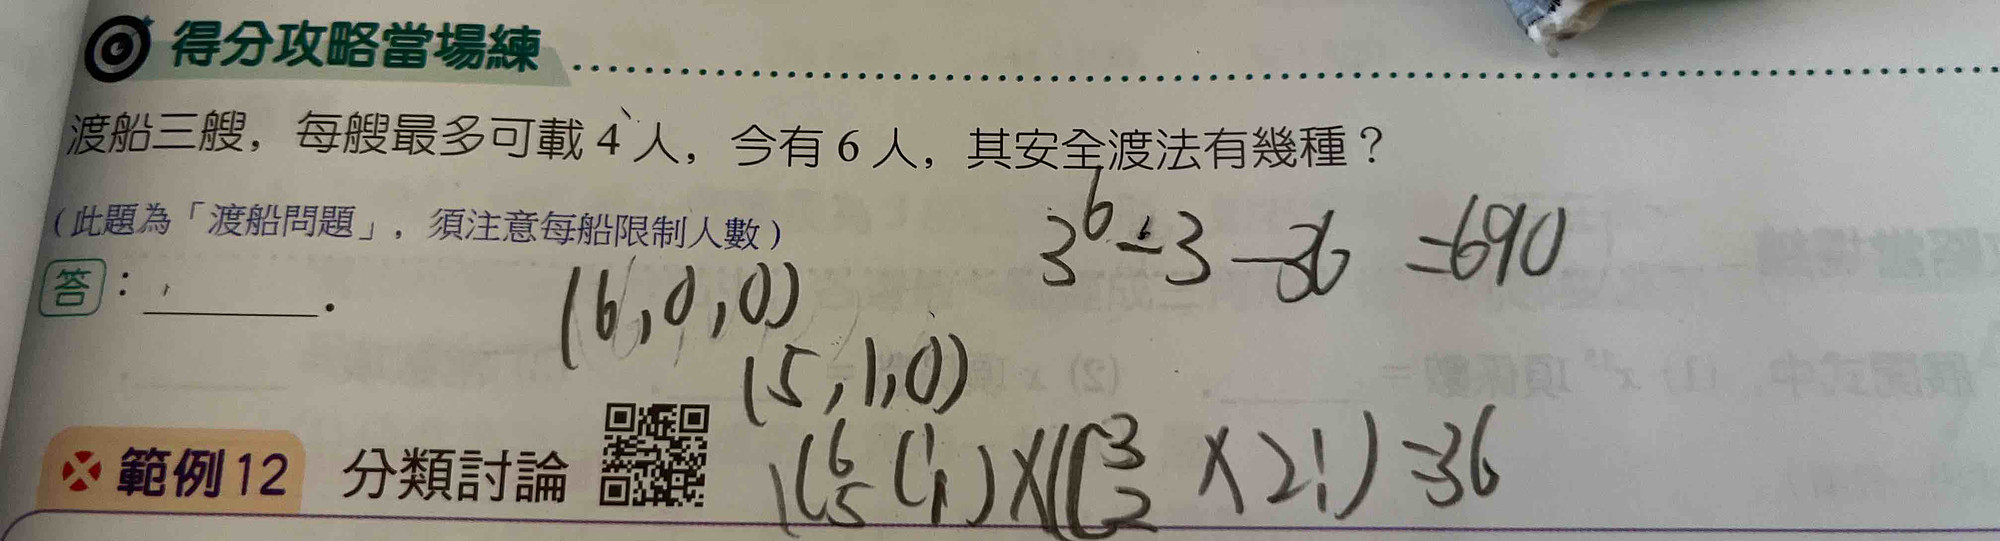 得分攻略當場練
渡船三艘，每艘最多可載 4 人，今有 6 人，其安全渡法有幾種？
（此題為「渡船問題」，須注意每船限制人數）
3⁶-3-36=690
答：________．
(6,0,0)
(5,1,0)
(C⁶₅C¹₁)×(C³₂×2!)=36
範例12 分類討論